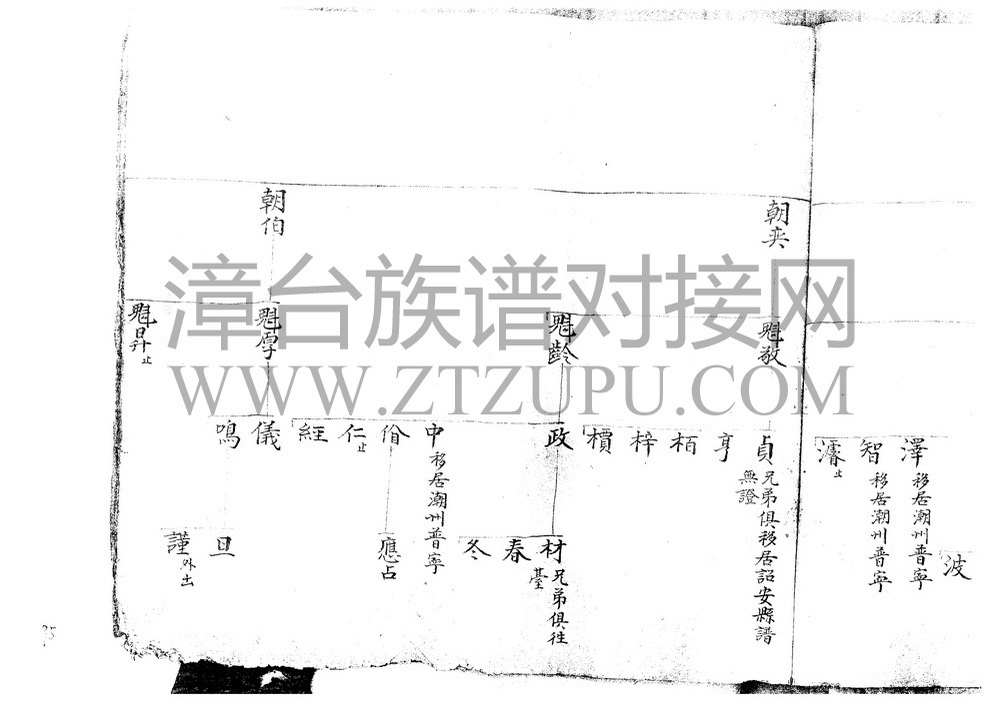 波
澤 移居潮州普寧
智 移居潮州普寧
濬 止
朝奕
魁敬
貞 兄弟俱移居詔安縣譜
無證
亨
栢
梓
檟
魁齡
政
材 兄弟俱往
臺
春
冬
中 移居潮州普寧
佾
應占
仁 止
經
朝伯
魁厚
儀
鳴
旦
謹 外出
魁昇 止
漳台族谱对接网
WWW.ZTZUPU.COM